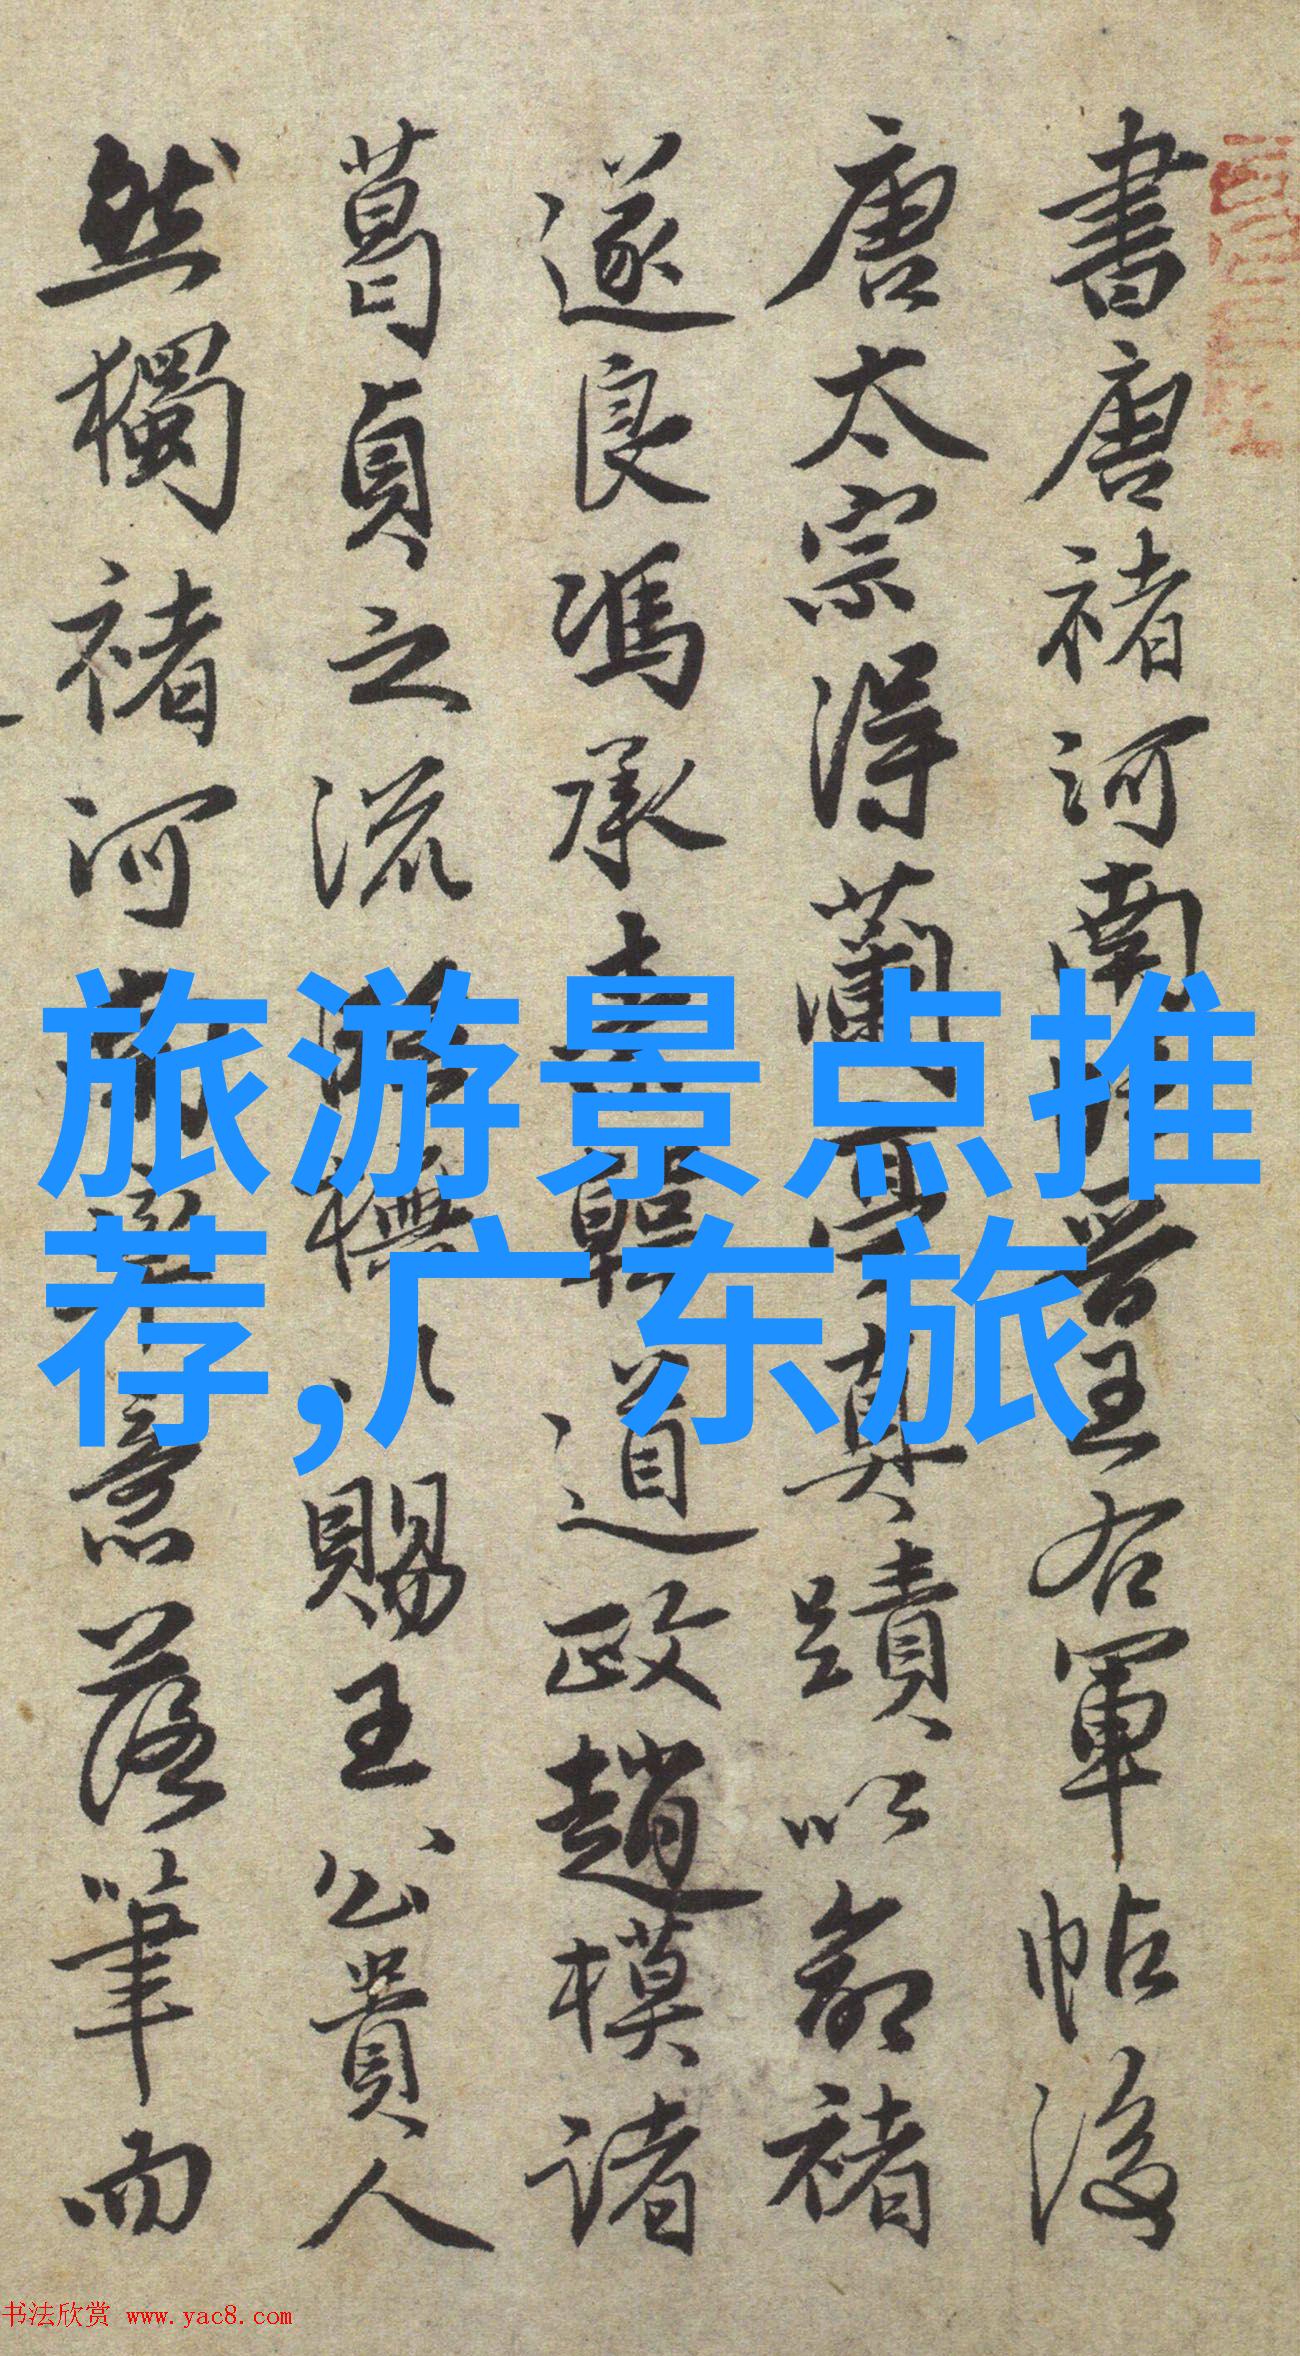 書唐褚河南臨晉王右軍帖後
唐太宗得蘭亭真蹟以命褚
遂良馮承素韓道政趙模諸
葛貞之流
賜王公貴人
然獨褚河
意落筆而
旅游景点推
荐,广东旅
书法欣赏 www.yac8.com